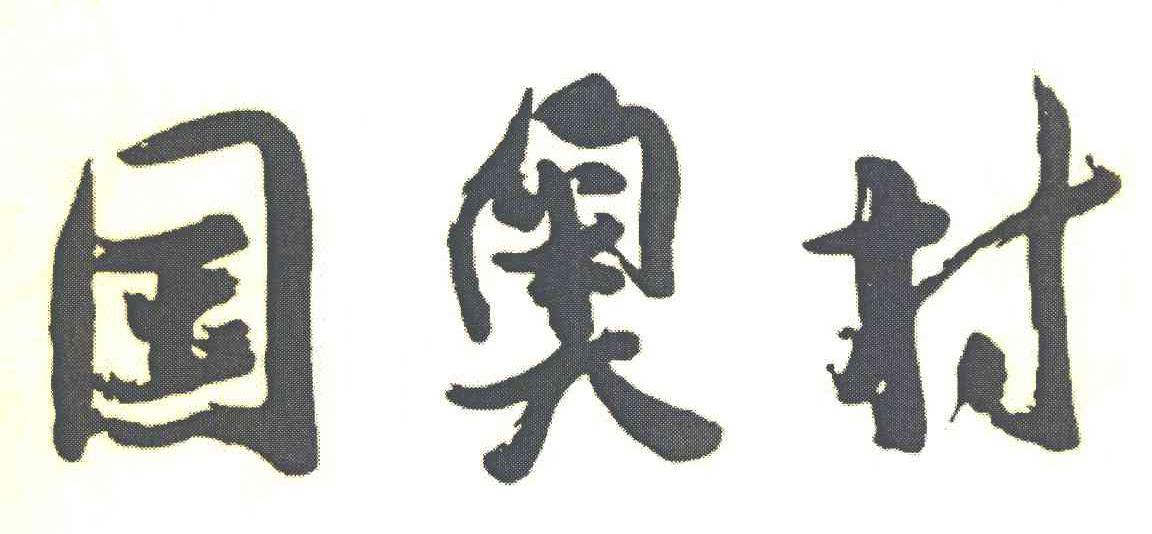 国奥村